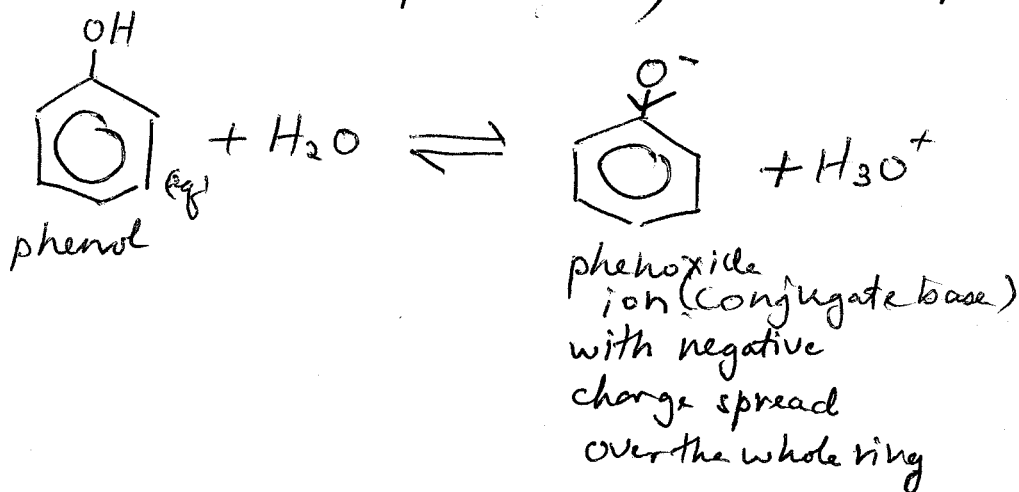 OH
O⁻
+ H₂O ⇌ + H₃O⁺
(aq)
phenol
phenoxide
ion (conjugate base)
with negative
charge spread
over the whole ring